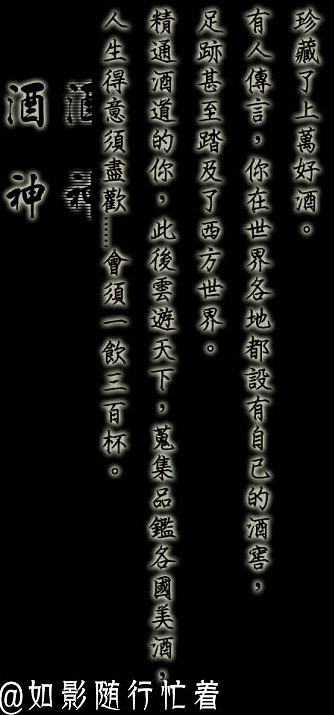 珍藏了上萬好酒。
有人傳言，你在世界各地都設有自己的酒窖，
足跡甚至踏及了西方世界。
精通酒道的你，此後雲遊天下，蒐集品鑑各國美酒，
人生得意須盡歡……會須一飲三百杯。
酒神
@如影随行忙着